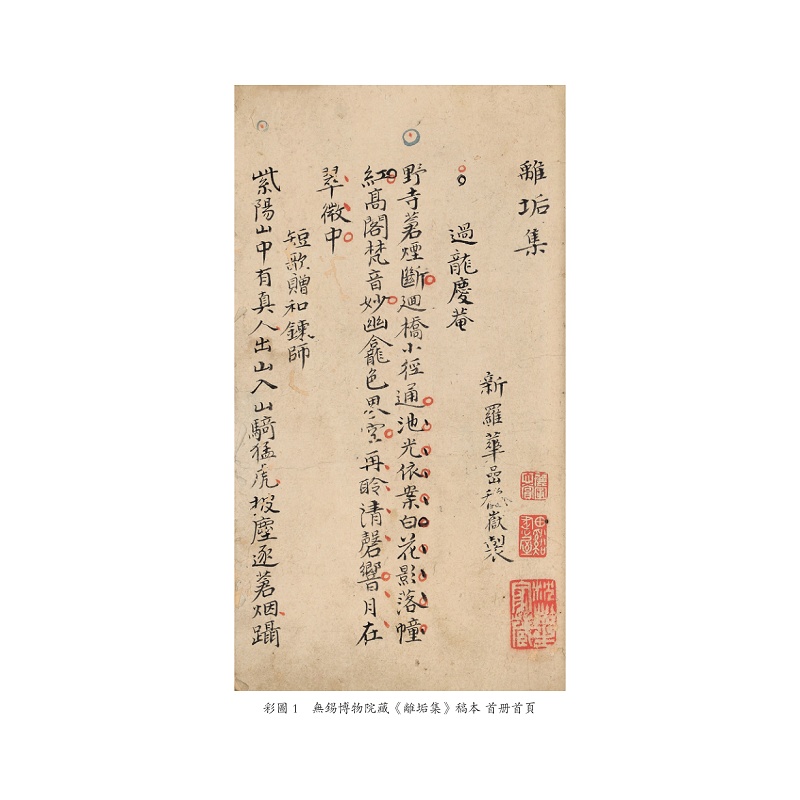 離垢集
新羅華喦嶽製
過龍慶菴
野寺蒼煙斷迴橋小徑通池光依案白花影落幢
紅高閣梵音妙幽龕色界空再聆清磬響月在
翠微中
短歌贈和鍊師
紫陽山中有真人出山入山騎猛虎披塵逐蒼烟躡
彩圖 1　無錫博物院藏《離垢集》稿本 首册首頁